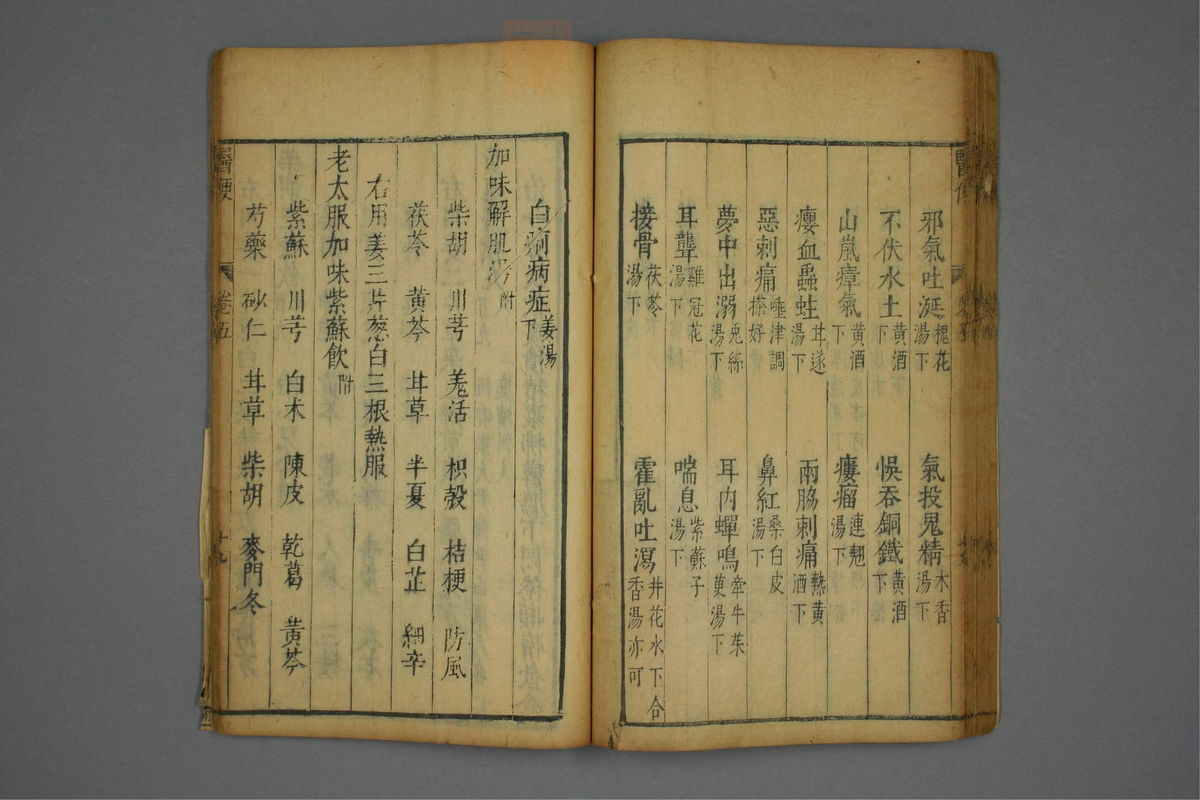 邪氣吐涎槐花湯下 氣投鬼精木香湯下
不伏水土黃酒下 悞吞銅鐵黃酒下
山嵐瘴氣黃酒下 癭瘤連翹湯下
瘿血蟲蛀耳遂湯下 兩脇刺痛熱黃酒下
惡刺痛唾津調搽好 鼻紅桑白皮湯下
夢中出溺兔絲湯下 耳內蟬鳴牽牛茱萸湯下
耳聾雞冠花湯下 喘息紫蘇子湯下
接骨茯苓湯下 霍亂吐瀉井花水下合香湯亦可
白痢病症姜湯下
加味解肌湯附
柴胡 川芎 羗活 枳殼 桔梗 防風
茯苓 黃芩 耳草 半夏 白芷 細辛
右用姜三片葱白三根熱服
老太服加味紫蘇飲附
紫蘇 川芎 白木 陳皮 乾葛 黃芩
芍藥 砂仁 耳草 柴胡 麥門冬
醫便 卷五 十九